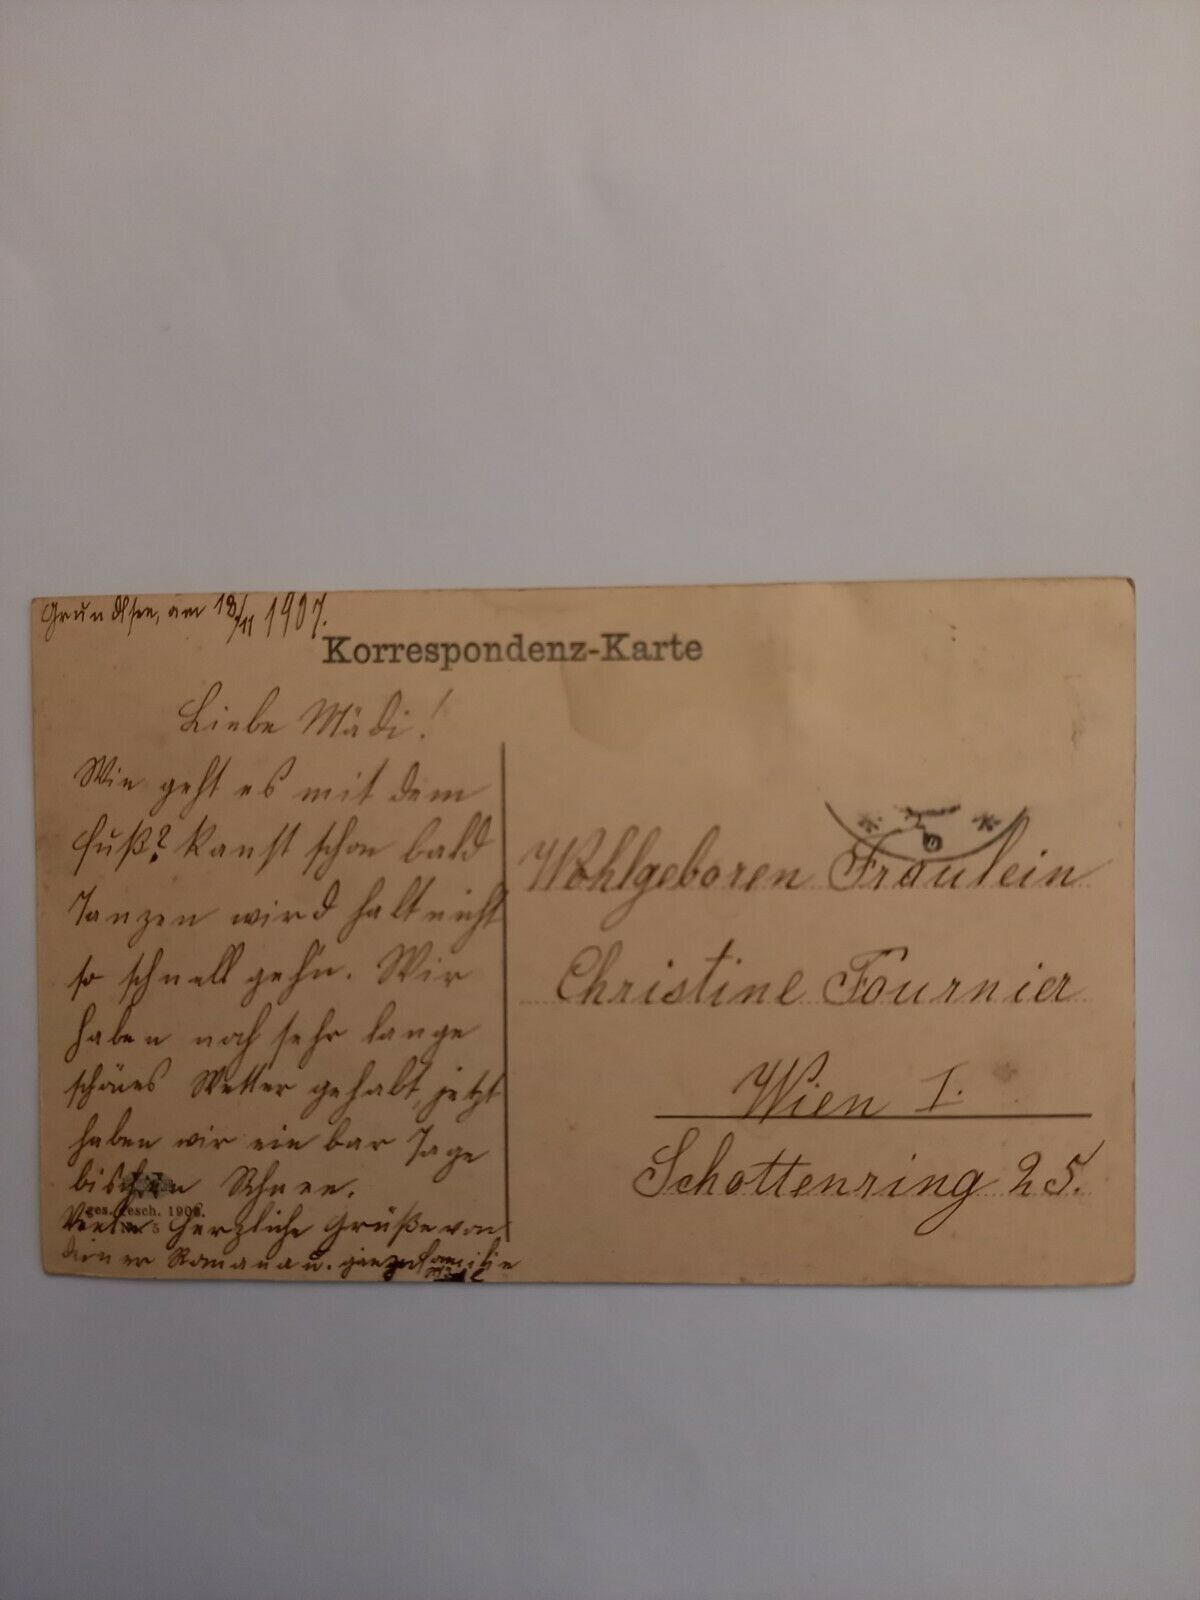 Grundlsee, am 18/11 1907.
Korrespondenz-Karte
Liebe Mädi!
Wie geht es mit dem
Fuß? kanst schon bald
Tanzen wird halt nicht
so schnell gehn. Wir
haben noch sehr lange
schönes Wetter gehabt, jetzt
haben wir ein bar Tage
bischen Schnee.
ges. gesch. 1906.
5
Viele herzliche Grüße von
deiner Romana u. ganze Familie
Wohlgeboren Fräulein
Christine Fournier
Wien I.
Schottenring 25.